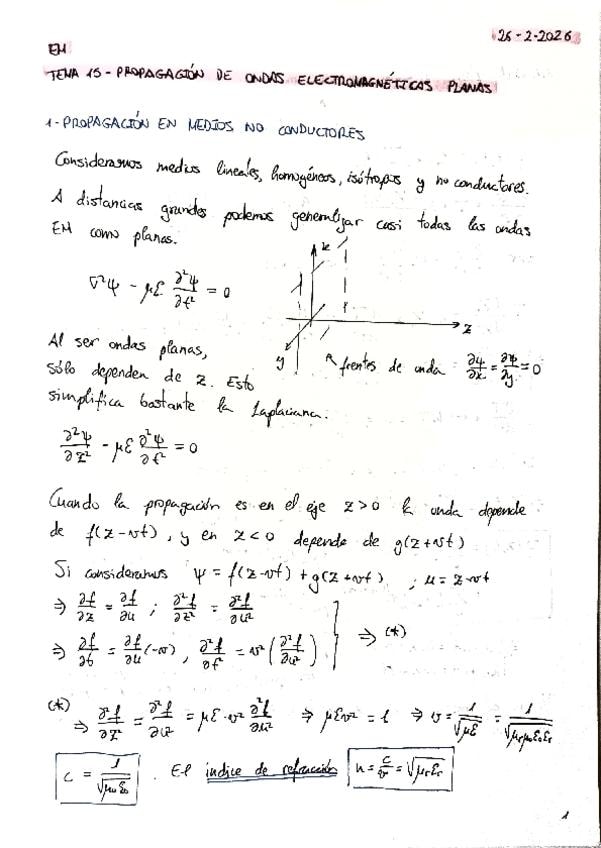 26-2-2026
EM
TEMA 15 - PROPAGACIÓN DE ONDAS ELECTROMAGNÉTICAS PLANAS
1- PROPAGACIÓN EN MEDIOS NO CONDUCTORES
Consideramos medios lineales, homogéneos, isótropos y no conductores.
A distancias grandes podemos generalizar casi todas las ondas
EM como planas.
∇²ψ - με ∂²ψ/∂t² = 0
x
z
y
Al ser ondas planas,
sólo dependen de z. Esto
simplifica bastante la Laplaciana.
frentes de onda ∂ψ/∂x = ∂ψ/∂y = 0
∂²ψ/∂z² - με ∂²ψ/∂t² = 0
Cuando la propagación es en el eje z>0 la onda depende
de f(z-vt), y en z<0 depende de g(z+vt)
Si consideramos ψ = f(z-vt) + g(z+vt) ; u = z-vt
⇒ ∂f/∂z = ∂f/∂u ; ∂²f/∂z² = ∂²f/∂u²
⇒ ∂f/∂t = ∂f/∂u (-v) , ∂²f/∂t² = v² (∂²f/∂u²) } ⇒ (*)
(*) ⇒ ∂²f/∂z² = ∂²f/∂u² = με · v² ∂²f/∂u² ⇒ μεv² = 1 ⇒ v = 1/√με = 1/√μrμ0ε0εr
c = 1/√μ0ε0 . El índice de refracción n = c/v = √μrεr
1